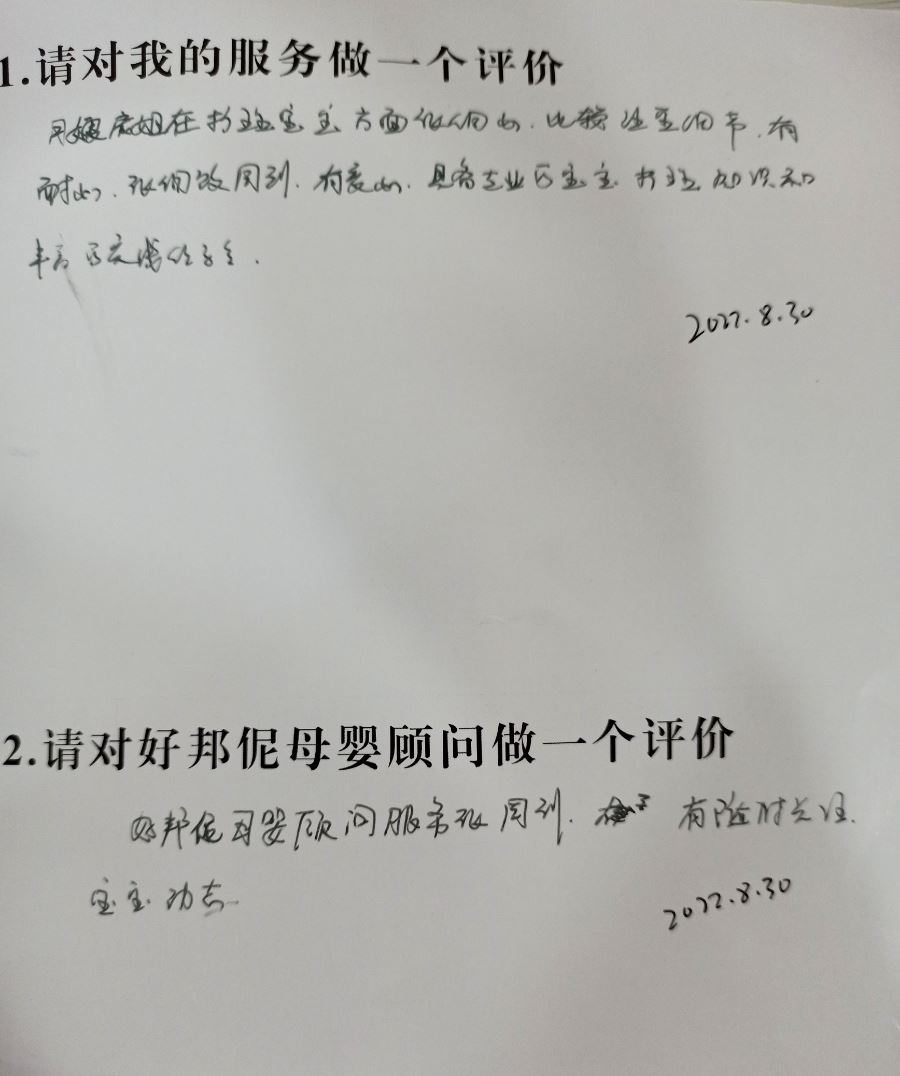 1.请对我的服务做一个评价
月嫂 姐在护理宝宝方面很细心.比较注重细节.有
耐心.很细致周到.有爱心.具备专业 宝宝护理知识和
丰富
2022.8.30
2.请对好邦伲母婴顾问做一个评价
好邦伲母婴顾问服务很周到. 有随时关注
宝宝动态
2022.8.30